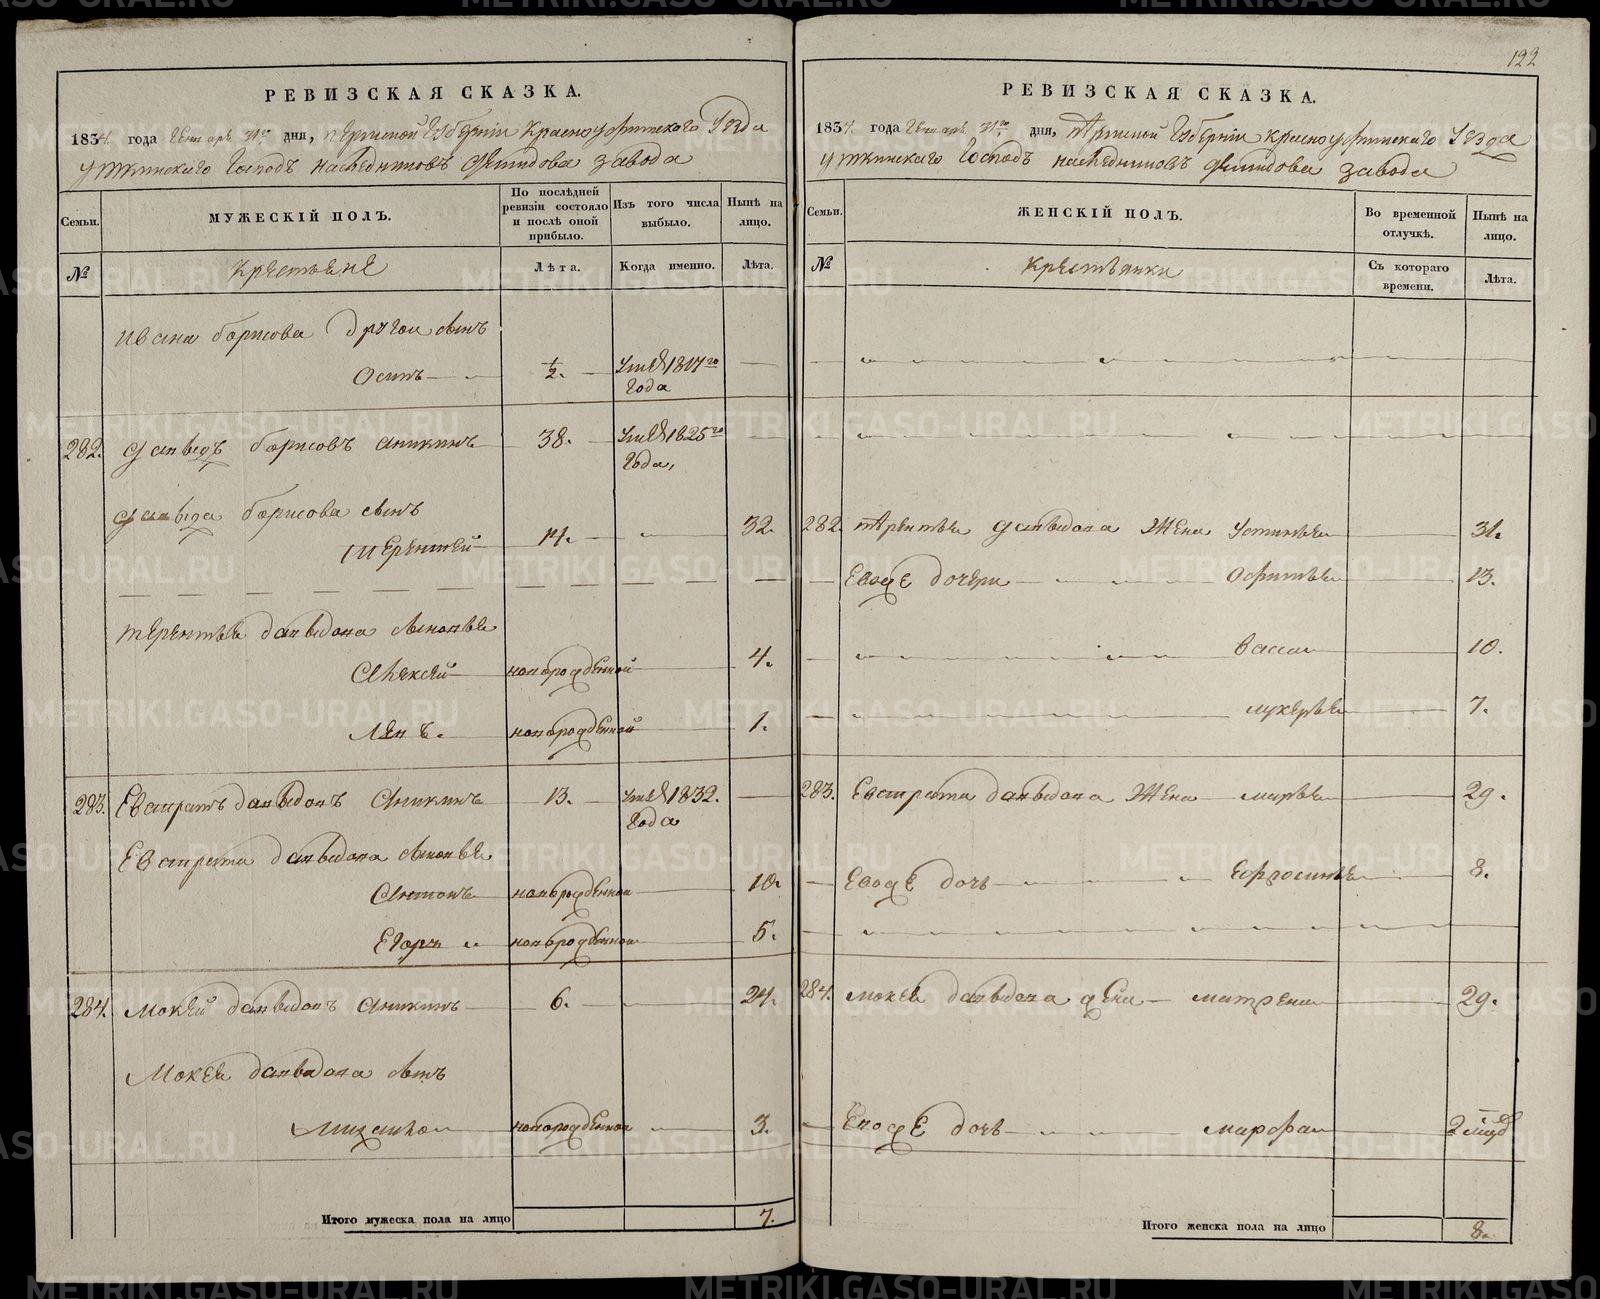 122
РЕВИЗСКАЯ СКАЗКА.
1834. года Генваря 31го дня, Пермской Губернiи Красноуфимскаго Уезда
Уткинскаго Господъ наследниковъ Демидова завода
Семьи.
МУЖЕСКIЙ ПОЛЪ.
По послѣдней ревизiи состояло и послѣ оной прибыло.
Изъ того числа выбыло.
Нынѣ на лицо.
№
Крестьяне
Лѣта.
Когда именно.
Лѣта.
Ивана Борисова другой сынъ
Осипъ ½. 1817го
года
282. Давыдъ Борисовъ Аникинъ 38. 1825го
года,
Давыда Борисова сынъ
Терентей 14. 32.
Терентья Давыдова сыновья
Алексей новорожденной 4.
новорожденной 1.
283. Евстратъ Давыдовъ Аникинъ 13. 1832.
года
Евстрата Давыдова сыновья
Антонъ новорожденной 10.
Егоръ новорожденной 5.
284. Мокей Давыдовъ Аникинъ 6. 24.
Мокея Давыдова сынъ
Михайло новорожденной 3.
Итого мужеска пола на лицо 7.
РЕВИЗСКАЯ СКАЗКА.
1834. года Генваря 31го дня, Пермской Губернiи Красноуфимскаго Уезда
Уткинскаго Господъ наследниковъ Демидова завода
Семьи.
ЖЕНСКIЙ ПОЛЪ.
Во временной отлучкѣ.
Нынѣ на лицо.
№
Крестьянки
Съ котораго времени.
Лѣта.
282. Терентья Давыдова жена Устинья 31.
Евоже дочери 13.
Васса 10.
Лукерья 7.
283. Евстрата Давыдова жена Марья 29.
Евоже дочь Ефросинья 8.
284. Мокея Давыдова жена Матрена 29.
Евоже дочь Марфа 2
Итого женска пола на лицо 8.
METRIKI.GASO-URAL.RU